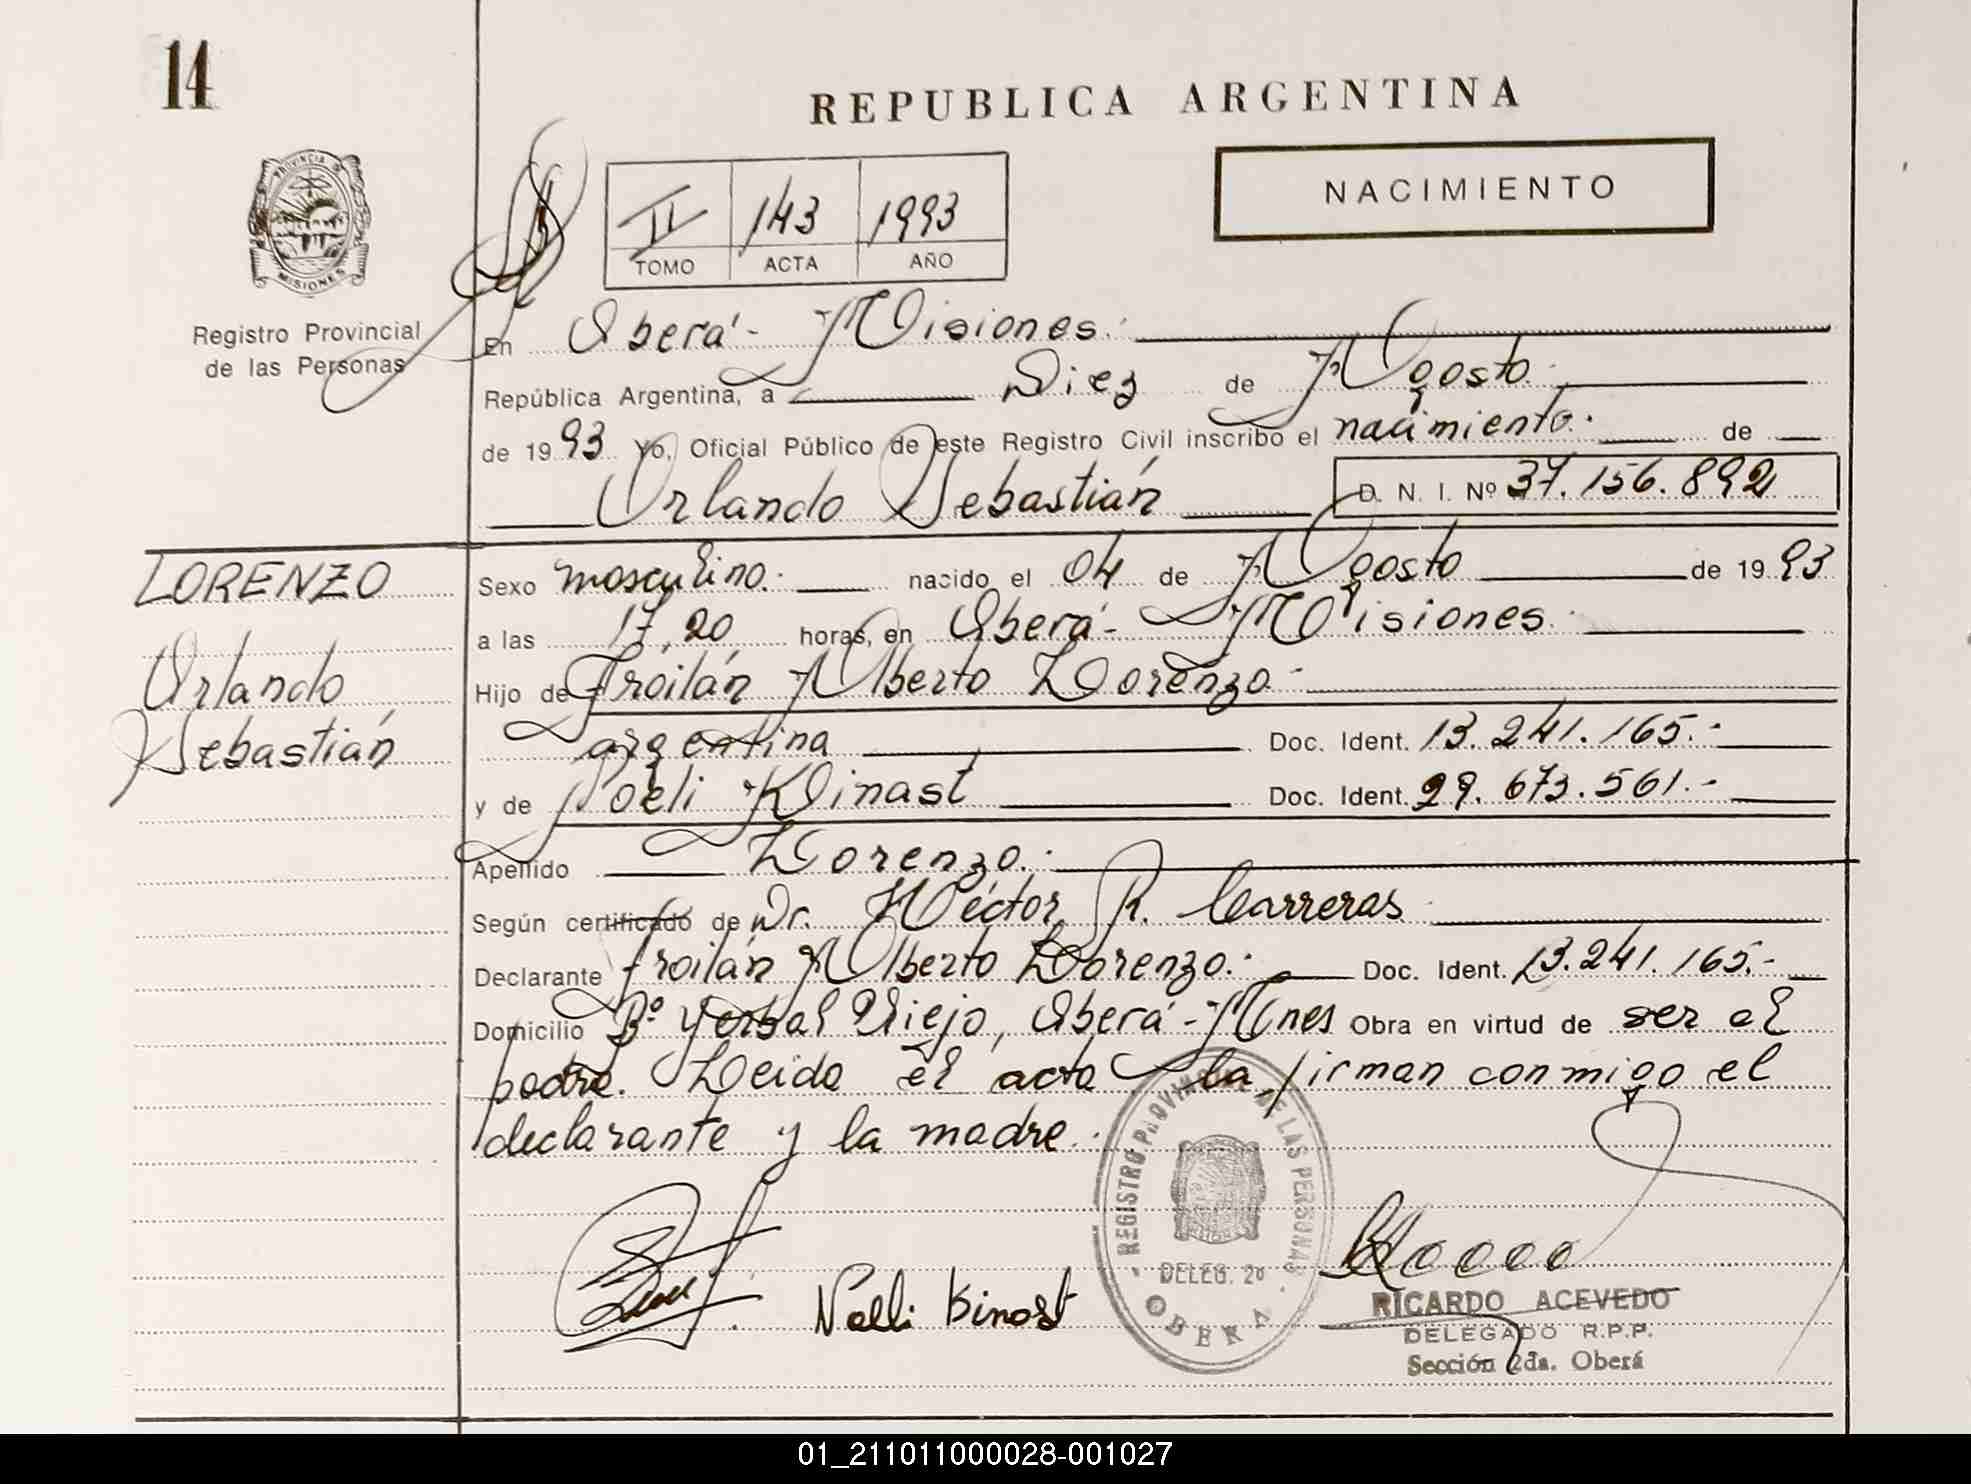 14
REPUBLICA ARGENTINA
NACIMIENTO
PROVINCIA DE
MISIONES
Registro Provincial
de las Personas
II 143 1993
TOMO ACTA AÑO
En Oberá - Misiones.-
República Argentina, a Diez de Agosto.-
de 1993 Yo, Oficial Público de este Registro Civil inscribo el nacimiento.- de
Orlando Sebastián D. N. I. Nº 37.156.892
LORENZO
Orlando
Sebastián
Sexo masculino.- nacido el 04 de Agosto de 1993
a las 17,20 horas, en Oberá - Misiones.
Hijo de Froilán Alberto Lorenzo.-
argentina Doc. Ident. 13.241.165.-
y de Noeli Kinast Doc. Ident. 29.673.561.-
Apellido Lorenzo.-
Según certificado de Dr. Héctor R. Carreras
Declarante Froilán Alberto Lorenzo.- Doc. Ident. 13.241.165.-
Domicilio Bº Yerbal Viejo, Oberá - Mnes Obra en virtud de ser el
padre. Leída el acta la firman conmigo el
declarante y la madre.-
REGISTRO PROVINCIAL DE LAS PERSONAS
DELEG. 2º
OBERA
Noelli Kinast
RICARDO ACEVEDO
DELEGADO R.P.P.
Sección 2da. Oberá
01_211011000028-001027